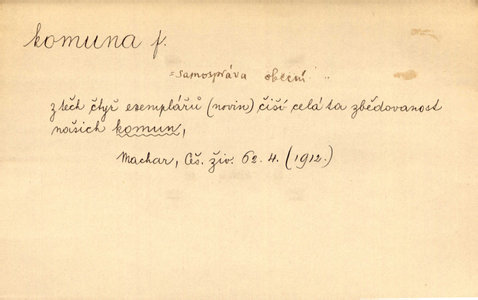 komuna f.
= samospráva obecní
z těch čtyř exemplářů (novin) čiší celá ta zbědovanost
našich komun,
Machar, Čš. živ. 62. 4. (1912.)